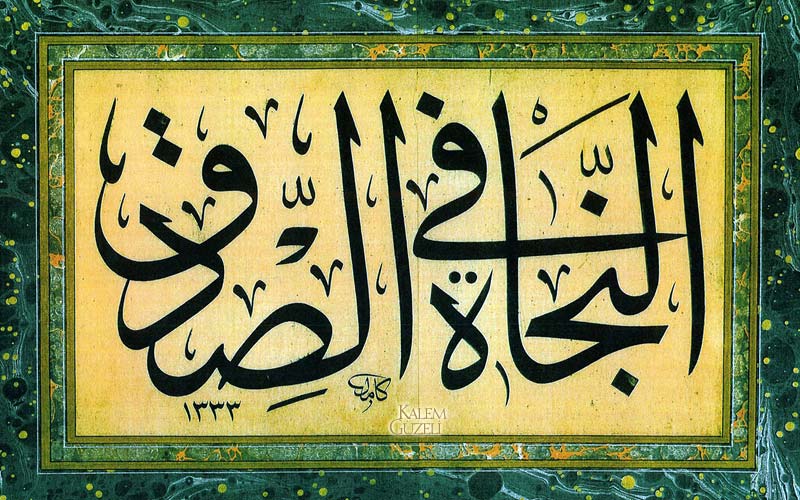 النَّجَاةُ فِي الصِّدْقِ
كامل
١٣٣٣
KALEM
GÜZELİ